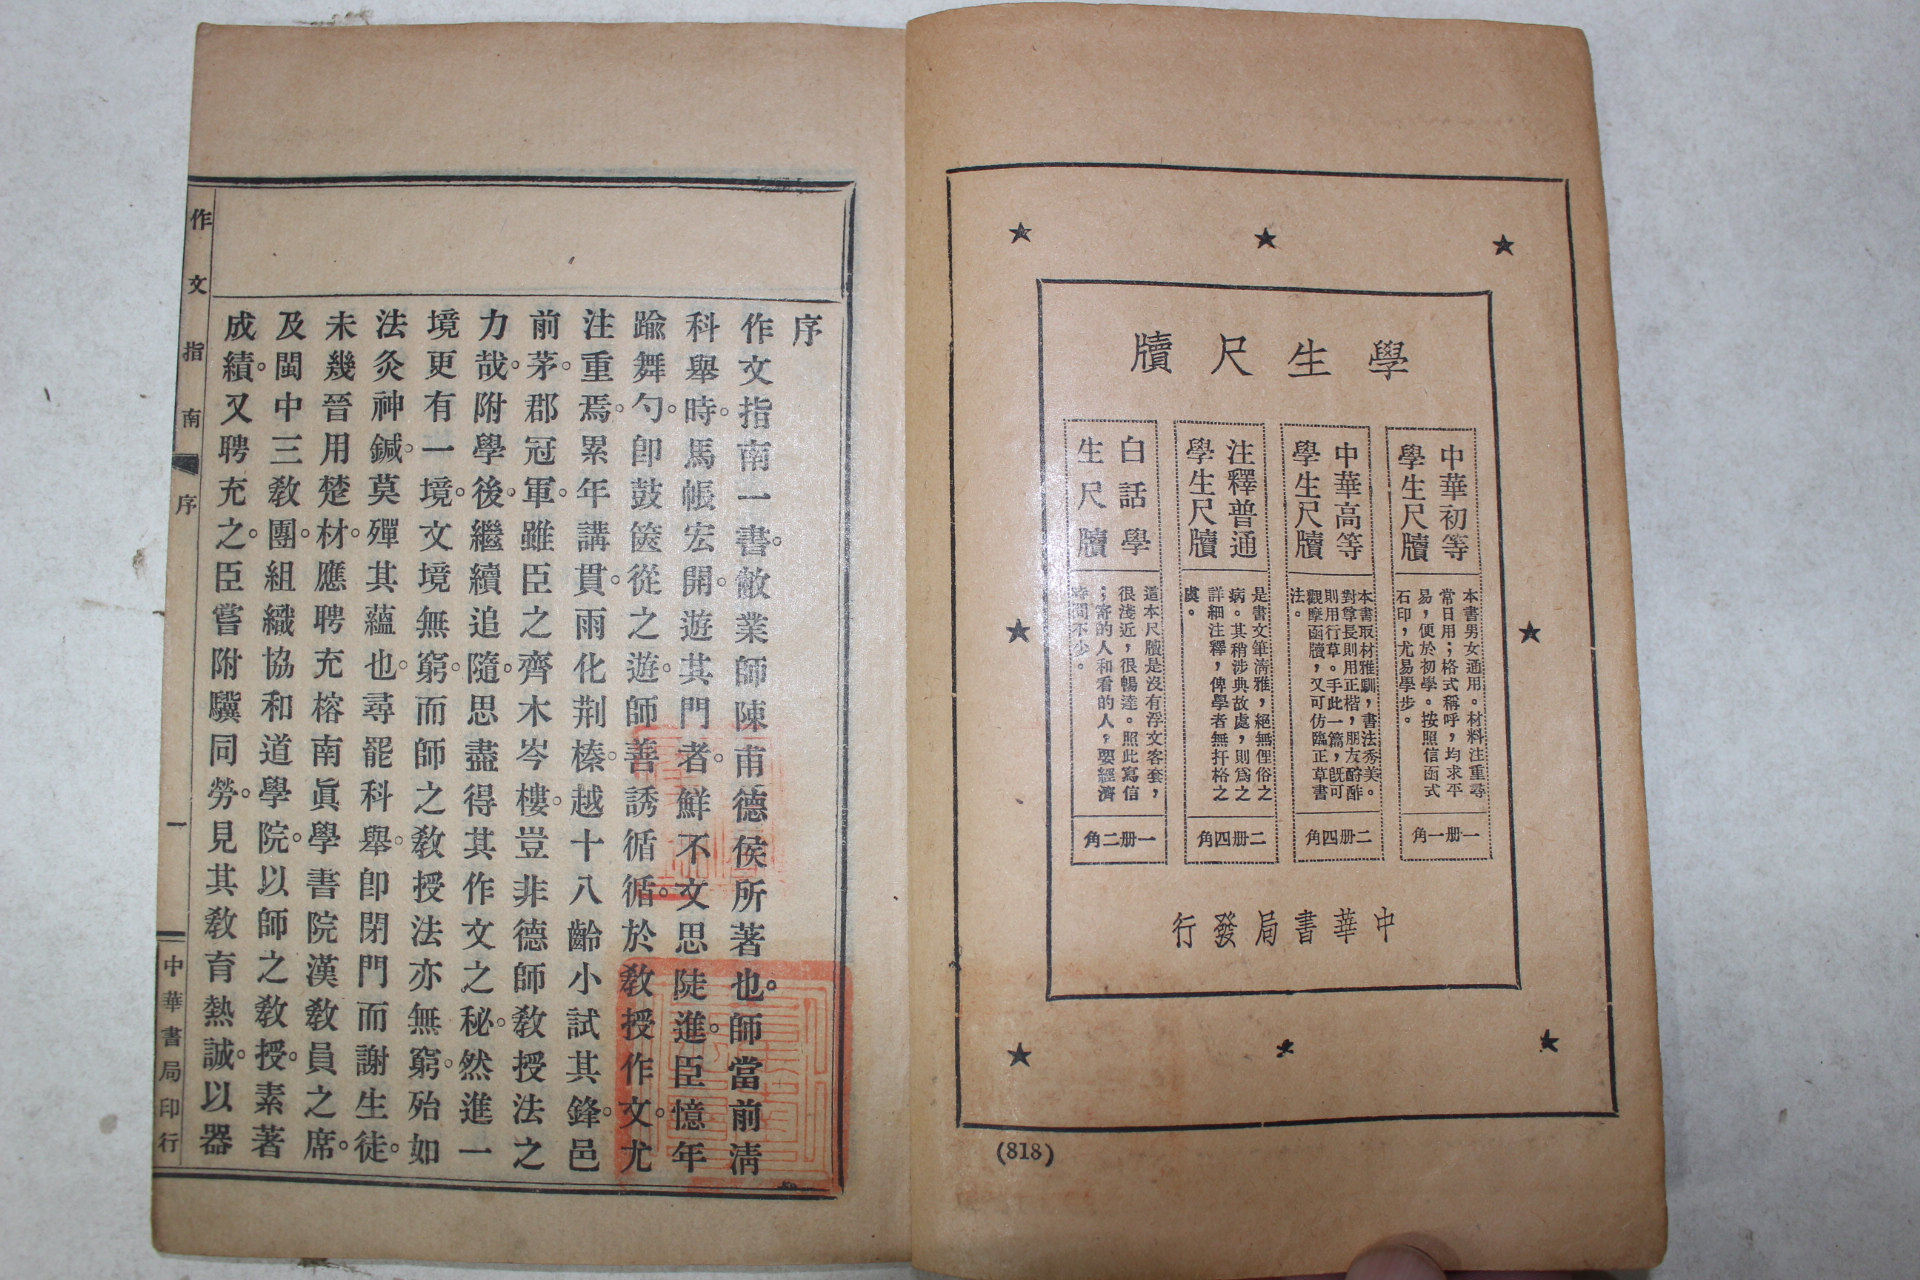 學生尺牘
中華初等
學生尺牘
本書男女通用。材料注重尋
常日用；格式稱呼，均求平
易，便於初學。按照信函式
石印，尤易學步。
一册一角
中華高等
學生尺牘
本書取材雅馴，書法秀美。
對尊長則用正楷，朋友酬酢
則用行草。手此一篇，既可
觀摩函牘，又可仿臨正草書
法。
二册四角
注釋普通
學生尺牘
是書文筆淸雅，絕無俚俗之
病。其稍涉典故處，則爲之
詳細注釋，俾學者無扞格之
虞。
二册四角
白話學
生尺牘
這本尺牘是沒有浮文客套，
很淺近，很暢達。照此寫信
；寄的人和看的人，要經濟
時間不少。
一册二角
中華書局發行
(818)
序
作文指南一書。敝業師陳甫德侯所著也。師當前淸
科舉時。馬帳宏開。遊其門者。鮮不文思陡進。臣憶年
踰舞勺。卽鼓篋從之遊。師善誘循循。於敎授作文。尤
注重焉。累年講貫。雨化荆榛。越十八齡小試其鋒。邑
前茅。郡冠軍。雖臣之齊木岑樓。豈非德師敎授法之
力哉。附學後。繼續追隨。思盡得其作文之秘。然進一
境更有一境。文境無窮。而師之敎授法亦無窮。殆如
法灸神鍼。莫殫其蘊也。尋罷科舉。卽閉門而謝生徒。
未幾晉用楚材。應聘充榕南眞學書院漢敎員之席。
及閩中三敎團。組織協和道學院。以師之敎授。素著
成績。又聘充之。臣嘗附驥同勞。見其敎育熱誠。以器
作文指南
序
一
中華書局印行